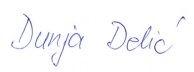 Dunja Delić